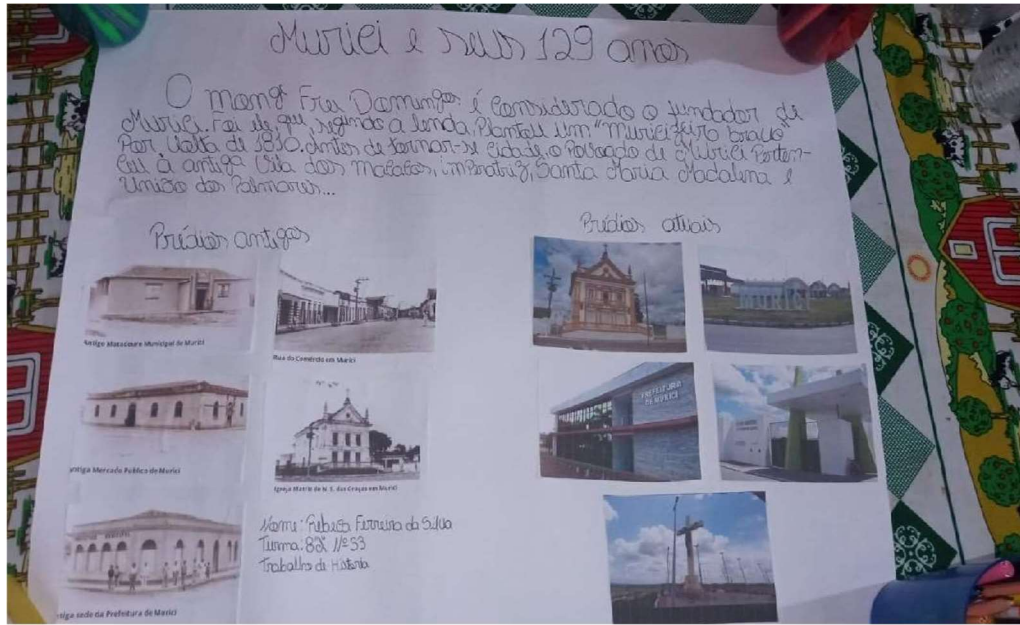 Murici e seus 129 anos
O monge Frei Domingos é considerado o fundador de
Murici. Foi ele que, segundo a lenda, Plantou um "muricizeiro bravo"
Por volta de 1810. Antes de tornar-se cidade, o Povoado de Murici Perten-
ceu à antiga Vila dos Macacos, imperatriz, Santa Maria Madalena e
União dos Palmares...
Prédios antigos
Prédios atuais
Antigo Matadouro Municipal de Murici
Rua do Comércio em Murici
MURICI
PREFEITURA
DE MURICI
Antigo Mercado Público de Murici
Igreja Matriz de N. S. das Graças em Murici
Nome: Rebeca Ferreira da Silva
Turma: 8º Nº 33
Trabalho de História
Antiga sede da Prefeitura de Murici